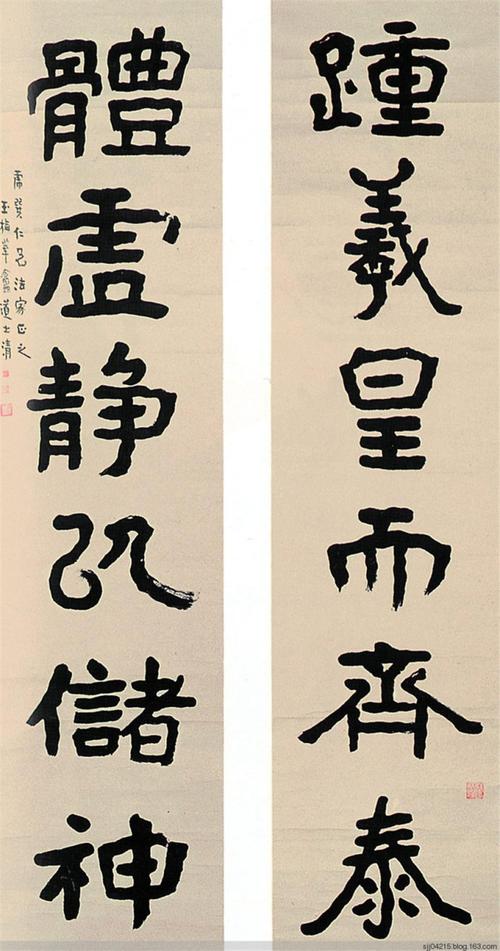 踵羲皇而齊泰
體虛静以儲神
仁兄法家正之
玉梅華盦道士清
sjj04215.blog.163.com